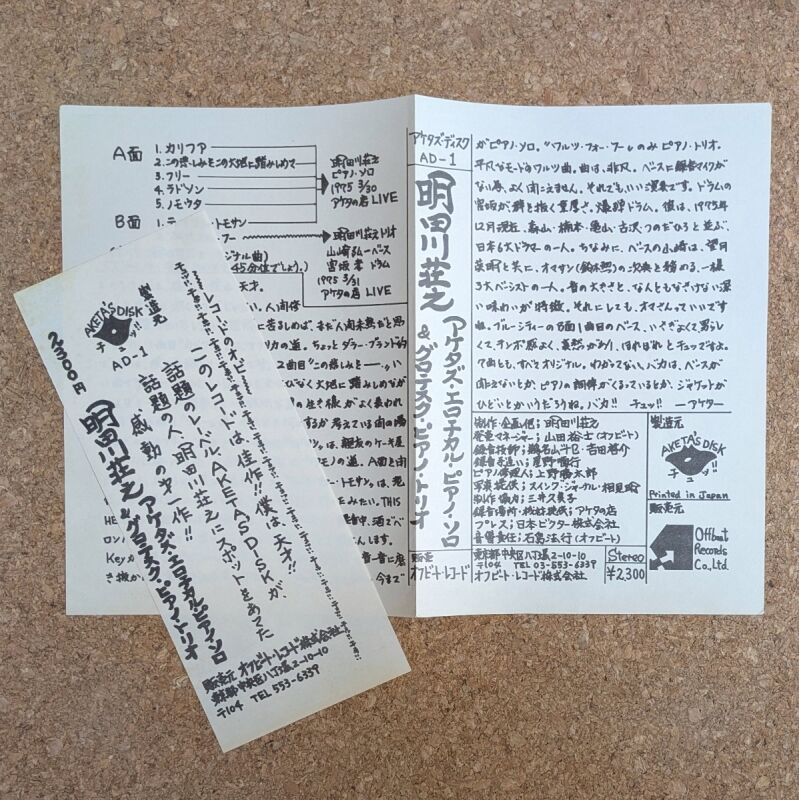 A面
1. カリフア
2. この悲しみをこの大地に踏みしめて
3. フリー
4. ラドソン
5. ノモウタ
明田川荘之
ピアノ・ソロ
1975 3/30
アケタの店 LIVE
B面
1. テ
トモサン
フー
明田川荘之トリオ
山崎弘一 ベース
ドラム
1975 3/31
アケタの店 LIVE
ジナル曲)
45分位でしょう。)
天才。
い。人間倍
に苦しめば、まだ人間未熟だと思
リカの道。ちょっとダラー・ブランド的
2曲目"この悲しみを――い
びなく大地に踏みしめなが
の生き様がよく表われ
するが考えている
は、親友のケーキ屋
モノの道。A面と
・トモサンは、
たみたい。THIS
酒でべ
んします。
今まで
アケタズ・ディスク
AD-1
明田川荘之
アケタズ・エロチカル・ピアノ・ソロ
&グロテスク・ピアノ・トリオ
販売
オフビート・レコード
がピアノ・ソロ。"ワルツ・フォー・フー"のみ ピアノ・トリオ。
平凡なモードのワルツ曲。曲は、非凡。ベースに録音マイクが
ない為、よく聞こえません。それでもいい演奏です。ドラムの
宮坂が群を抜く重厚さ。爆弾ドラム。彼は、1975年
12月現在、森山・楠本・亀山・古沢・つのだひろと並ぶ、
日本6大ドラマーの一人。ちなみに、ベースの山崎は、望月
英明と共に、オマサン(鈴木勲)の次
大ベーシストの一人。音の大きさと、なんともなさけない深
い味わいが特徴。それにしても、オマさんっていいですね
ブルー・シティーのB面1曲目のベース、いさぎよくて男らし
くて、テンポ感よく、哀愁があり、ほれぼれとチュッですよ。
7曲とも、すべてオリジナル。わかってない、バカは、ベースが
聞こえないとか、ピアノの調律がくるっているとか、ジャケットが
ひどいとかいうだろうね。バカ!! チュッ!! ―アケター
制作・企画・他;明田川荘之
発売マネージャー;山田裕士(オフビート)
録音技師;鵜名山十巳・吉田啓介
録音手造い;星野
ピアノ調理人;上野勝太郎
写真提供;スイング・ジャーナル・相見
制作協力;三井久美子
録音場所・機材提供;アケタの店
プレス;日本ビクター株式会社
音響責任;石島法行(オフビート)
製造元
AKETA'S DISK
チュッ!!
Printed in Japan
販売元
Offbeat
Records
Co., Ltd.
東京都中央区八丁堀2-10-10
〒104 TEL 03-553-6339
オフビート・レコード株式会社
Stereo
¥2,300
製造元
AKETA'S DISK
チュッ!!
AD-1
2,300円
レコードのオビ
このレコードは佳作!!僕は、天才!!
話題のレーベルAKETA'S DISKが、
話題の人、明田川荘之にスポットをあてた
感動の第一作!!
明田川荘之
アケタズ・エロチカル・ピアノ・ソロ
&グロテスク・ピアノ・トリオ
販売元 オフビート・レコード株式会社
東京都中央区八丁堀2-10-10
〒104 TEL 553-6339